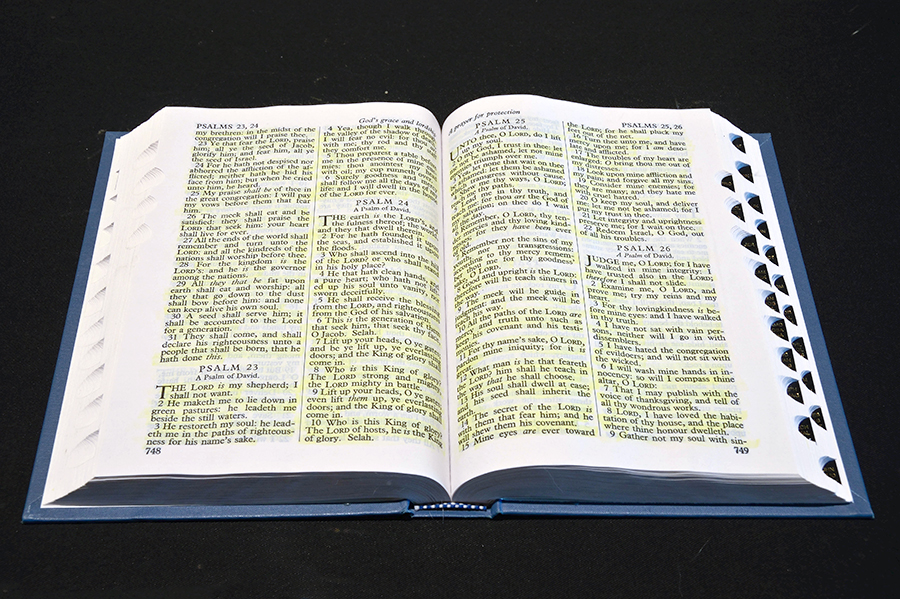 PSALMS 23, 24
my brethren: in the midst of the
congregation will I praise thee.
23 Ye that fear the LORD, praise
him; all ye the seed of Jacob,
glorify him; and fear him, all ye
the seed of Israel.
24 For he hath not despised nor
abhorred the affliction of the af-
flicted; neither hath he hid his
face from him; but when he cried
unto him, he heard.
25 My praise shall be of thee in
the great congregation: I will pay
my vows before them that fear
him.
26 The meek shall eat and be
satisfied: they shall praise the
LORD that seek him: your heart
shall live for ever.
27 All the ends of the world shall
remember and turn unto the
LORD: and all the kindreds of the
nations shall worship before thee.
28 For the kingdom is the
LORD's: and he is the governor
among the nations.
29 All they that be fat upon
earth shall eat and worship: all
they that go down to the dust
shall bow before him: and none
can keep alive his own soul.
30 A seed shall serve him; it
shall be accounted to the Lord
for a generation.
31 They shall come, and shall
declare his righteousness unto a
people that shall be born, that he
hath done this.
PSALM 23
A Psalm of David.
THE LORD is my shepherd; I
shall not want.
2 He maketh me to lie down in
green pastures: he leadeth me
beside the still waters.
3 He restoreth my soul: he lead-
eth me in the paths of righteous-
ness for his name's sake.
748
God's grace and
4 Yea, though I walk
the valley of the shadow of
I will fear no evil: for
with me; thy rod and thy
they comfort me.
5 Thou preparest a table
me in the presence of mine
mies: thou anointest my
with oil; my cup runneth
6 Surely goodness and
shall follow me all the days
life: and I will dwell in the
of the LORD for ever.
PSALM 24
A Psalm of David.
THE earth is the LORD's,
the fulness thereof; the
and they that dwell therein.
2 For he hath founded it
the seas, and established it
the floods.
3 Who shall ascend into the
of the LORD? or who shall
in his holy place?
4 He that hath clean hands,
a pure heart; who hath not
ed up his soul unto vanity,
sworn deceitfully.
5 He shall receive the
from the LORD, and righteousness
from the God of his salvation.
6 This is the generation of
that seek him, that seek thy
O Jacob. Selah.
7 Lift up your heads, O ye
and be ye lift up, ye everlasting
doors; and the King of glory
come in.
8 Who is this King of glory?
The LORD strong and mighty,
the LORD mighty in battle.
9 Lift up your heads, O ye
even lift them up, ye everlasting
doors; and the King of glory
come in.
10 Who is this King of glory?
The LORD of hosts, he is the King
of glory. Selah.
A prayer for protection
PSALM 25
A Psalm of David.
UNTO thee, O LORD, do I lift
up my soul.
God, I trust in thee: let
be ashamed, let not mine
triumph over me.
let none that wait on thee
ashamed: let them be ashamed
transgress without cause.
me thy ways, O LORD;
me thy paths.
me in thy truth, and
me: for thou art the God of
salvation; on thee do I wait
day.
Remember, O LORD, thy ten-
mercies and thy loving kind-
for they have been ever
Remember not the sins of my
nor my transgressions:
according to thy mercy remem-
me for thy goodness'
LORD.
Good and upright is the LORD:
therefore will he teach sinners in
way.
The meek will he guide in
judgment: and the meek will he
his way.
10 All the paths of the LORD are
mercy and truth unto such as
his covenant and his testi-
11 For thy name's sake, O LORD,
mine iniquity; for it is
What man is he that feareth
LORD? him shall he teach
way that he shall choose.
His soul shall dwell at ease;
his seed shall inherit the
14 The secret of the LORD is
with them that fear him; and he
will shew them his covenant.
15 Mine eyes are ever toward
PSALMS 25, 26
the LORD; for he shall pluck my
feet out of the net.
thee unto me, and have
mercy upon me; for I am deso-
late and afflicted.
The troubles of my heart are
enlarged: O bring thou me out of
my distresses.
18 Look upon mine affliction and
my pain; and forgive all my sins.
19 Consider mine enemies; for
they are many; and they hate me
with cruel hatred.
20 O keep my soul, and deliver
me: let me not be ashamed; for I
put my trust in thee.
21 Let integrity and uprightness
preserve me; for I wait on thee.
22 Redeem Israel, O God, out
of all his troubles.
PSALM 26
A Psalm of David.
JUDGE me, O LORD; for I have
walked in mine integrity: I
have trusted also in the LORD;
therefore I shall not slide.
2 Examine me, O LORD, and
prove me; try my reins and my
heart.
3 For thy lovingkindness is be-
fore mine eyes: and I have walked
in thy truth.
4 I have not sat with vain per-
sons, neither will I go in with
dissemblers.
5 I have hated the congregation
of evildoers; and will not sit with
the wicked.
6 I will wash mine hands in in-
nocency: so will I compass thine
altar, O LORD:
7 That I may publish with the
voice of thanksgiving, and tell of
all thy wondrous works.
8 LORD, I have loved the habi-
tation of thy house, and the place
where thine honour dwelleth.
9 Gather not my soul with sin-
749